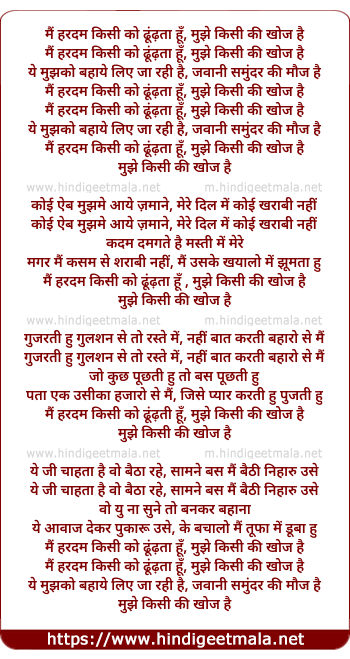 मैं हरदम किसी को ढूंढ़ता हूँ, मुझे किसी की खोज है
मैं हरदम किसी को ढूंढ़ता हूँ, मुझे किसी की खोज है
ये मुझको बहाये लिए जा रही है, जवानी समुंदर की मौज है
मैं हरदम किसी को ढूंढ़ता हूँ, मुझे किसी की खोज है
मैं हरदम किसी को ढूंढ़ता हूँ, मुझे किसी की खोज है
ये मुझको बहाये लिए जा रही है, जवानी समुंदर की मौज है
मैं हरदम किसी को ढूंढ़ता हूँ, मुझे किसी की खोज है
मुझे किसी की खोज है
www.hindigeetmala.net m.hindigeetmala.net
कोई ऐब मुझमे आये ज़माने, मेरे दिल में कोई खराबी नहीं
कोई ऐब मुझमे आये ज़माने, मेरे दिल में कोई खराबी नहीं
कदम दमगते है मस्ती में मेरे
मगर मैं कसम से शराबी नहीं, मैं उसके खयालो में झूमता हु
मैं हरदम किसी को ढूंढ़ता हूँ , मुझे किसी की खोज है
मुझे किसी की खोज है
www.hindigeetmala.net m.hindigeetmala.net
गुजरती हु गुलशन से तो रस्ते में, नहीं बात करती बहारो से मैं
गुजरती हु गुलशन से तो रस्ते में, नहीं बात करती बहारो से मैं
जो कुछ पूछती हु तो बस पूछती हु
पता एक उसीका हजारो से मैं, जिसे प्यार करती हु पुजती हु
मैं हरदम किसी को ढूंढ़ती हूँ, मुझे किसी की खोज है
मुझे किसी की खोज है
www.hindigeetmala.net m.hindigeetmala.net
ये जी चाहता है वो बैठा रहे, सामने बस मैं बैठी निहारु उसे
ये जी चाहता है वो बैठा रहे, सामने बस मैं बैठी निहारु उसे
वो यु ना सुने तो बनकर बहाना
ये आवाज देकर पुकारू उसे, के बचालो मैं तूफा में डूबा हु
मैं हरदम किसी को ढूंढ़ता हूँ, मुझे किसी की खोज है
मैं हरदम किसी को ढूंढ़ता हूँ, मुझे किसी की खोज है
ये मुझको बहाये लिए जा रही है, जवानी समुंदर की मौज है
मुझे किसी की खोज है
https://www.hindigeetmala.net